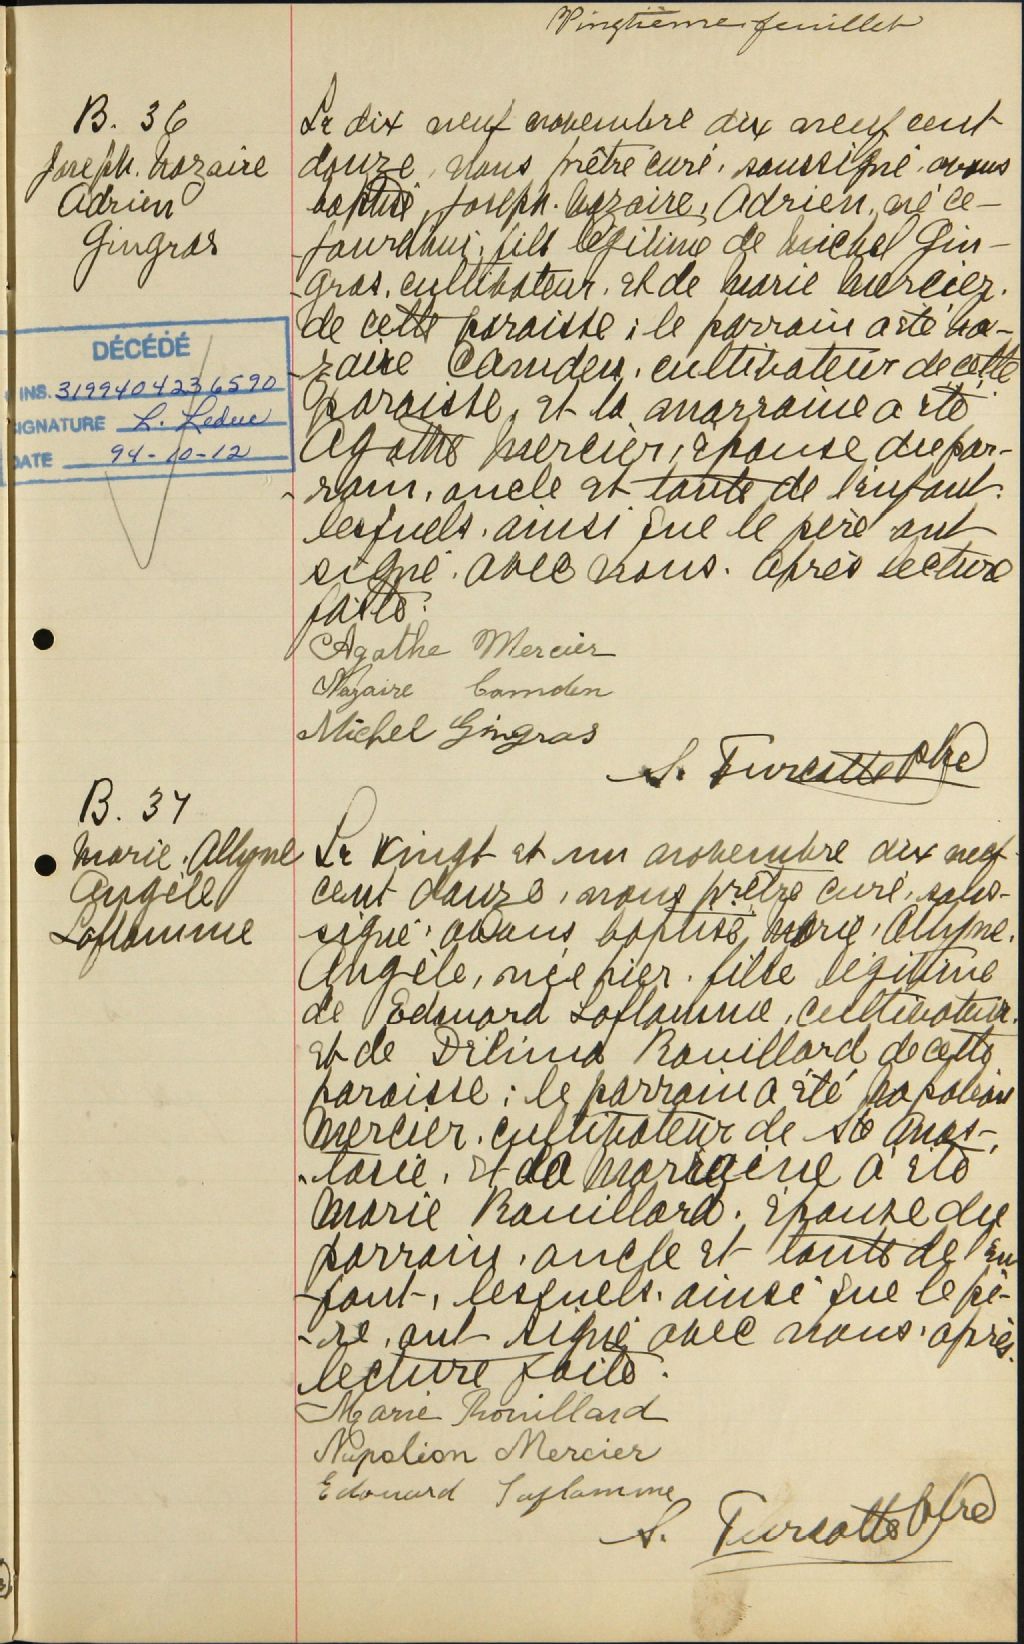 Vingtième feuillet
B. 36
Joseph. Nazaire
Adrien
Gingras
DÉCÉDÉ
INS. 3199404236590
SIGNATURE L. Leduc
DATE 94-10-12
Le dix neuf novembre dix neuf cent
douze, nous prêtre curé, soussigné, avons
baptisé, Joseph. Nazaire, Adrien, né ce-
jourdhui, fils légitime de Michel Gin-
-gras, cultivateur, et de Marie Mercier.
de cette paroisse ; le parrain a été Na-
-zaire Camden, cultivateur de cette
paroisse, et la marraine a été
Agathe Mercier, épouse du par-
-rain, oncle et tante de l'enfant.
lesquels, ainsi que le père ont
signé. avec nous. Après lecture
faite.
Agathe Mercier
Nazaire Camden
Michel Gingras
S. Turcotte Ptre
B. 37
Marie. Allyne
Angèle
Laflamme
Le vingt et un novembre dix neuf
cent douze, nous prêtre curé, sous-
-signé, avons baptisé, Marie, Allyne.
Angèle, née hier. fille légitime
de Edouard Laflamme, cultivateur.
et de Délima Rouillard, de cette
paroisse ; le parrain a été Napoléon
Mercier. cultivateur de Ste Anas-
-tasie, et la marraine a été
Marie Rouillard. épouse du
parrain, oncle et tante de l'en
-fant, lesquels, ainsi que le pè-
-re, ont signé avec nous, après
lecture faite.
Marie Rouillard
Napoléon Mercier
Edouard Laflamme
S. Turcotte Ptre